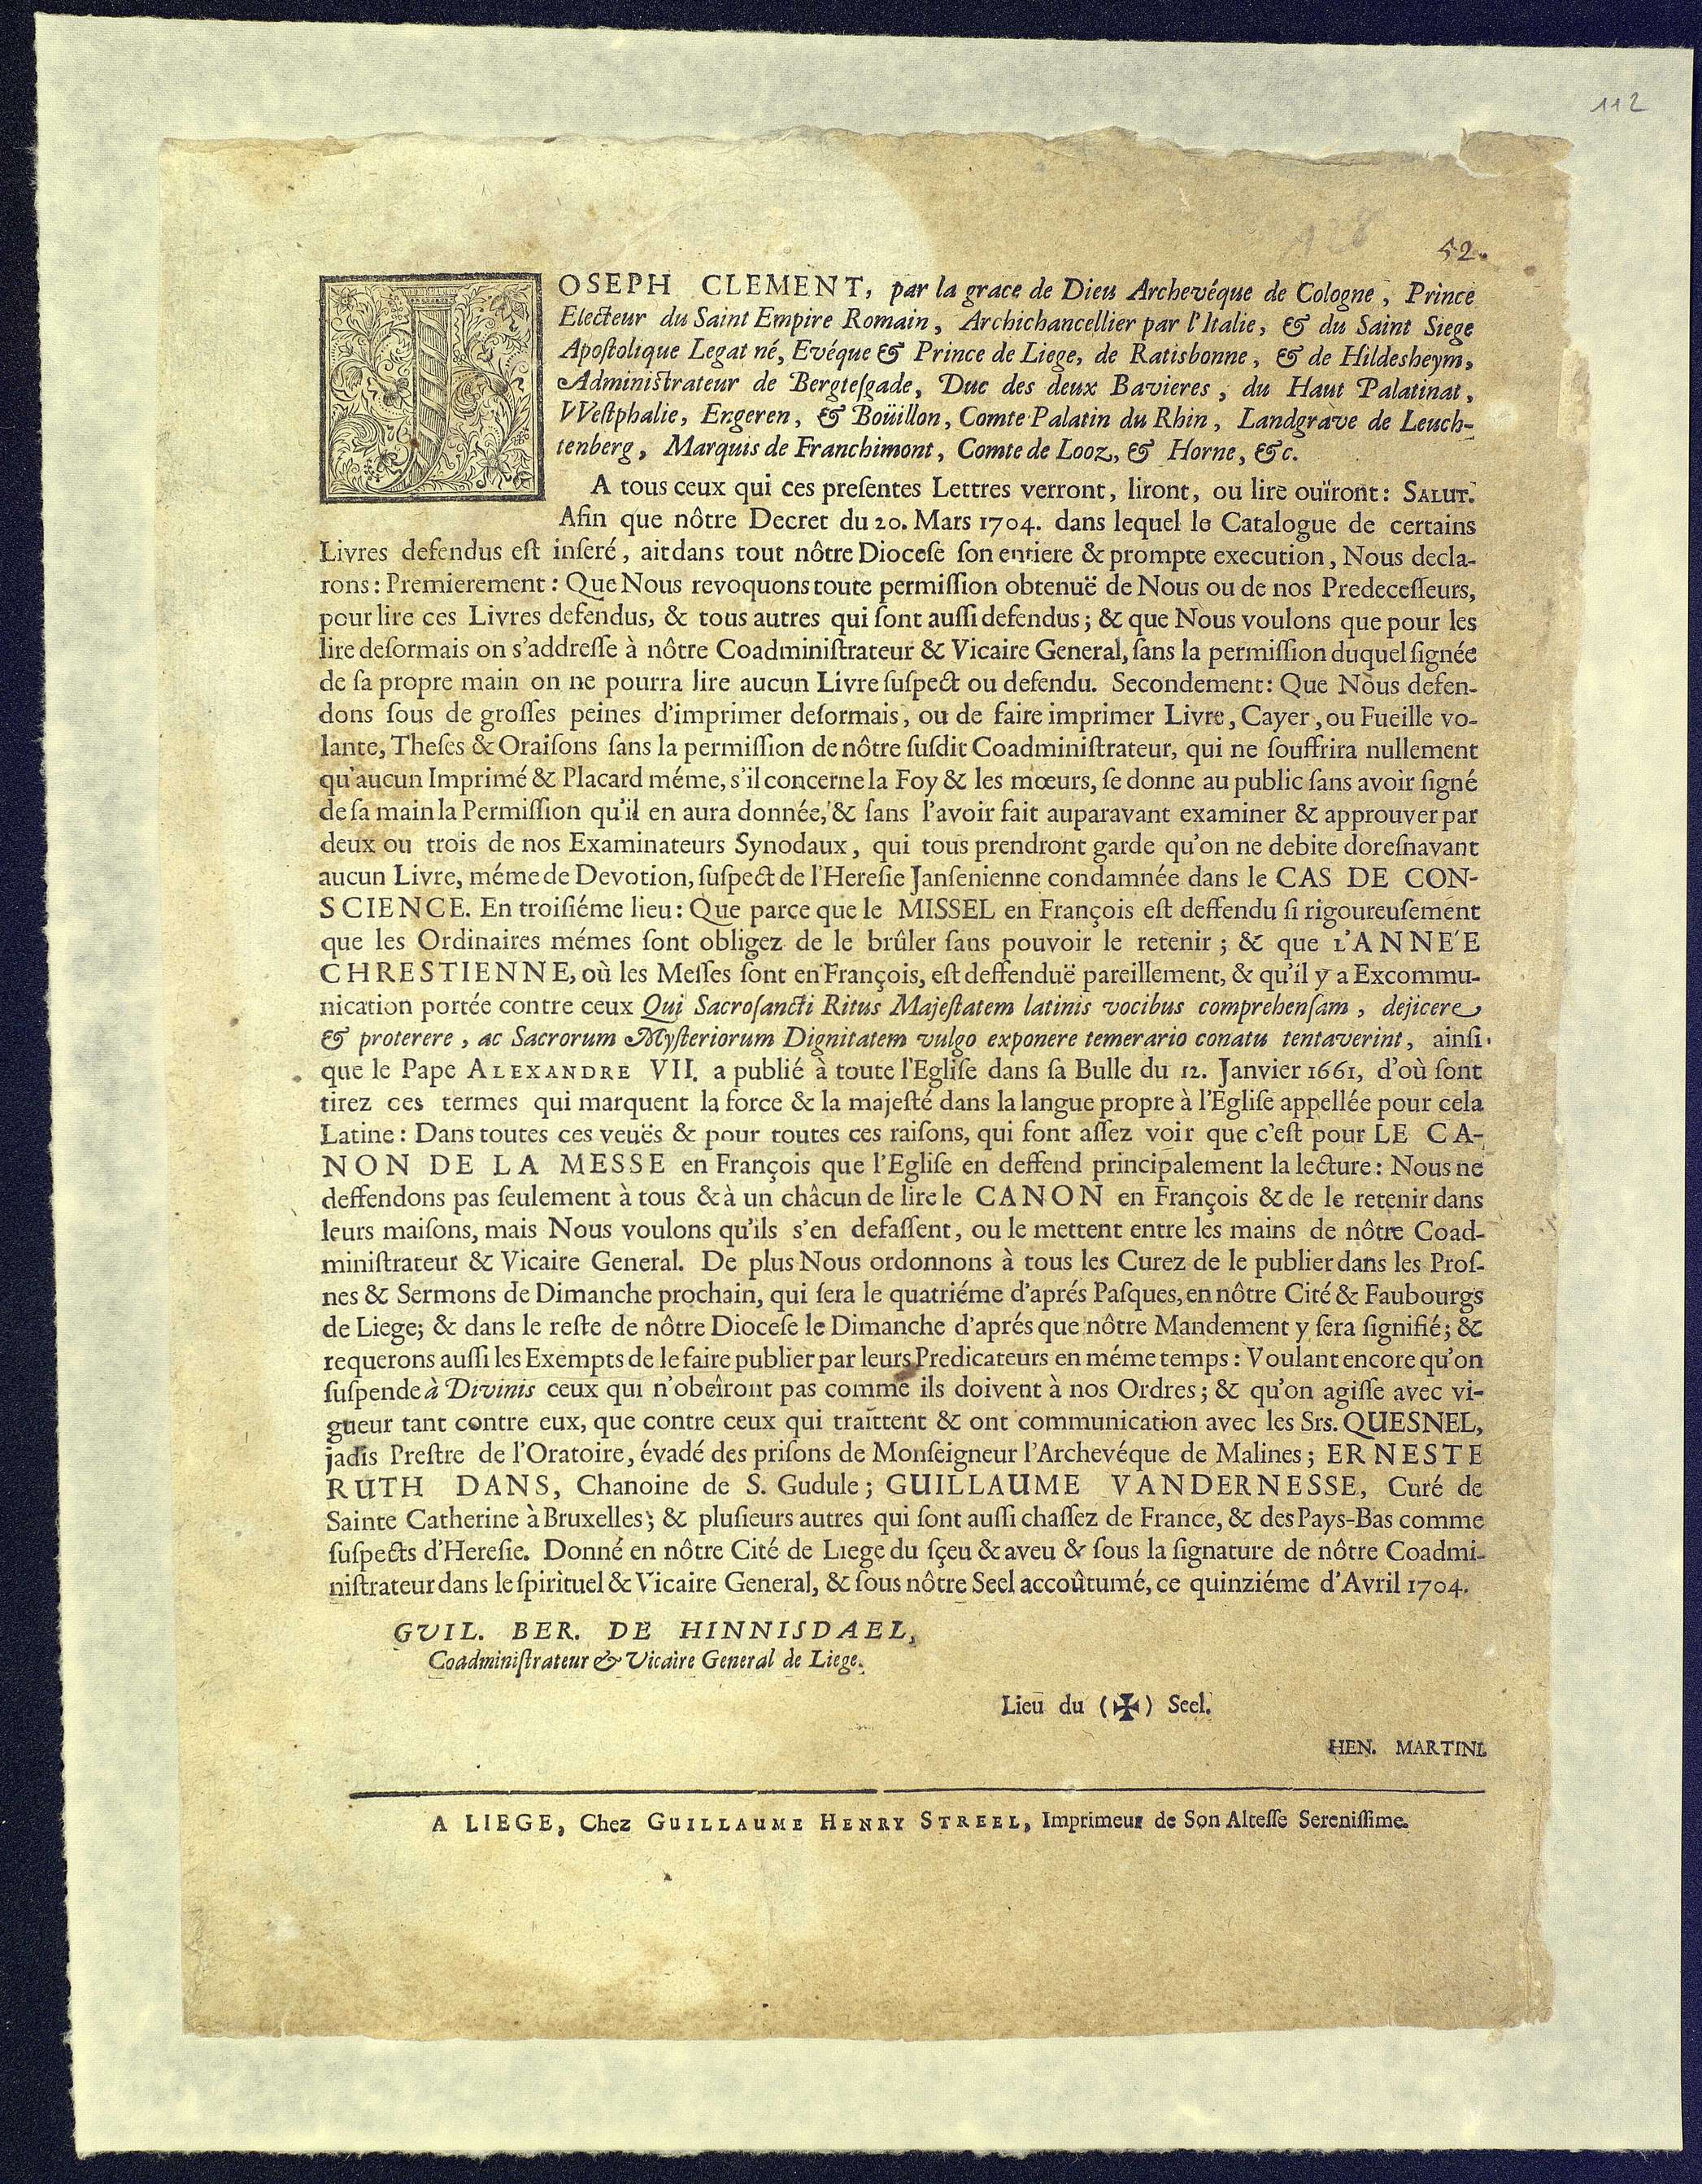 112
126
52.
JOSEPH CLEMENT, par la grace de Dieu Archevéque de Cologne, Prince
Electeur du Saint Empire Romain, Archichancellier par l'Italie, & du Saint Siege
Apoſtolique Legat né, Evéque & Prince de Liege, de Ratisbonne, & de Hildesheym,
Adminiſtrateur de Bergteſgade, Duc des deux Bavieres, du Haut Palatinat,
VVeſtphalie, Engeren, & Boüillon, Comte Palatin du Rhin, Landgrave de Leuch-
tenberg, Marquis de Franchimont, Comte de Looz, & Horne, &c.
A tous ceux qui ces preſentes Lettres verront, liront, ou lire ouïront: SALUT.
Afin que nôtre Decret du 20. Mars 1704. dans lequel le Catalogue de certains
Livres defendus eſt inſeré, ait dans tout nôtre Dioceſe ſon entiere & prompte execution, Nous decla-
rons: Premierement: Que Nous revoquons toute permiſſion obtenuë de Nous ou de nos Predeceſſeurs,
pour lire ces Livres defendus, & tous autres qui ſont auſſi defendus; & que Nous voulons que pour les
lire deſormais on s'addreſſe à nôtre Coadminiſtrateur & Vicaire General, ſans la permiſſion duquel ſignée
de ſa propre main on ne pourra lire aucun Livre ſuſpect ou defendu. Secondement: Que Nous defen-
dons ſous de groſſes peines d'imprimer deſormais, ou de faire imprimer Livre, Cayer, ou Fueille vo-
lante, Theſes & Oraiſons ſans la permiſſion de nôtre ſuſdit Coadminiſtrateur, qui ne ſouffrira nullement
qu'aucun Imprimé & Placard méme, s'il concerne la Foy & les mœurs, ſe donne au public ſans avoir ſigné
de ſa main la Permiſſion qu'il en aura donnée, & ſans l'avoir fait auparavant examiner & approuver par
deux ou trois de nos Examinateurs Synodaux, qui tous prendront garde qu'on ne debite doreſnavant
aucun Livre, méme de Devotion, ſuſpect de l'Hereſie Janſenienne condamnée dans le CAS DE CON-
SCIENCE. En troiſiéme lieu: Que parce que le MISSEL en François eſt deffendu ſi rigoureuſement
que les Ordinaires mémes ſont obligez de le brûler ſans pouvoir le retenir; & que L'ANNE'E
CHRESTIENNE, où les Meſſes ſont en François, eſt deffenduë pareillement, & qu'il y a Excommu-
nication portée contre ceux Qui Sacroſancti Ritus Majeſtatem latinis vocibus comprehenſam, dejicere
& proterere, ac Sacrorum Myſteriorum Dignitatem vulgo exponere temerario conatu tentaverint, ainſi
que le Pape ALEXANDRE VII. a publié à toute l'Egliſe dans ſa Bulle du 12. Janvier 1661, d'où ſont
tirez ces termes qui marquent la force & la majeſté dans la langue propre à l'Egliſe appellée pour cela
Latine: Dans toutes ces veuës & pour toutes ces raiſons, qui font aſſez voir que c'eſt pour LE CA-
NON DE LA MESSE en François que l'Egliſe en deffend principalement la lecture: Nous ne
deffendons pas ſeulement à tous & à un châcun de lire le CANON en François & de le retenir dans
leurs maiſons, mais Nous voulons qu'ils s'en defaſſent, ou le mettent entre les mains de nôtre Coad-
miniſtrateur & Vicaire General. De plus Nous ordonnons à tous les Curez de le publier dans les Proſ-
nes & Sermons de Dimanche prochain, qui ſera le quatriéme d'aprés Paſques, en nôtre Cité & Faubourgs
de Liege; & dans le reſte de nôtre Dioceſe le Dimanche d'aprés que nôtre Mandement y ſera ſignifié; &
requerons auſſi les Exempts de le faire publier par leurs Predicateurs en méme temps: Voulant encore qu'on
ſuſpende à Divinis ceux qui n'obeîront pas comme ils doivent à nos Ordres; & qu'on agiſſe avec vi-
gueur tant contre eux, que contre ceux qui traîttent & ont communication avec les Srs. QUESNEL,
jadis Preſtre de l'Oratoire, évadé des priſons de Monſeigneur l'Archevéque de Malines; ERNESTE
RUTH DANS, Chanoine de S. Gudule; GUILLAUME VANDERNESSE, Curé de
Sainte Catherine à Bruxelles; & pluſieurs autres qui ſont auſſi chaſſez de France, & des Pays-Bas comme
ſuſpects d'Hereſie. Donné en nôtre Cité de Liege du ſçeu & aveu & ſous la ſignature de nôtre Coadmi-
niſtrateur dans le ſpirituel & Vicaire General, & ſous nôtre Seel accoûtumé, ce quinziéme d'Avril 1704.
GUIL. BER. DE HINNISDAEL,
Coadminiſtrateur & Vicaire General de Liege.
Lieu du (✠) Seel.
HEN. MARTINI.
A LIEGE, Chez GUILLAUME HENRY STREEL, Imprimeur de Son Alteſſe Sereniſſime.